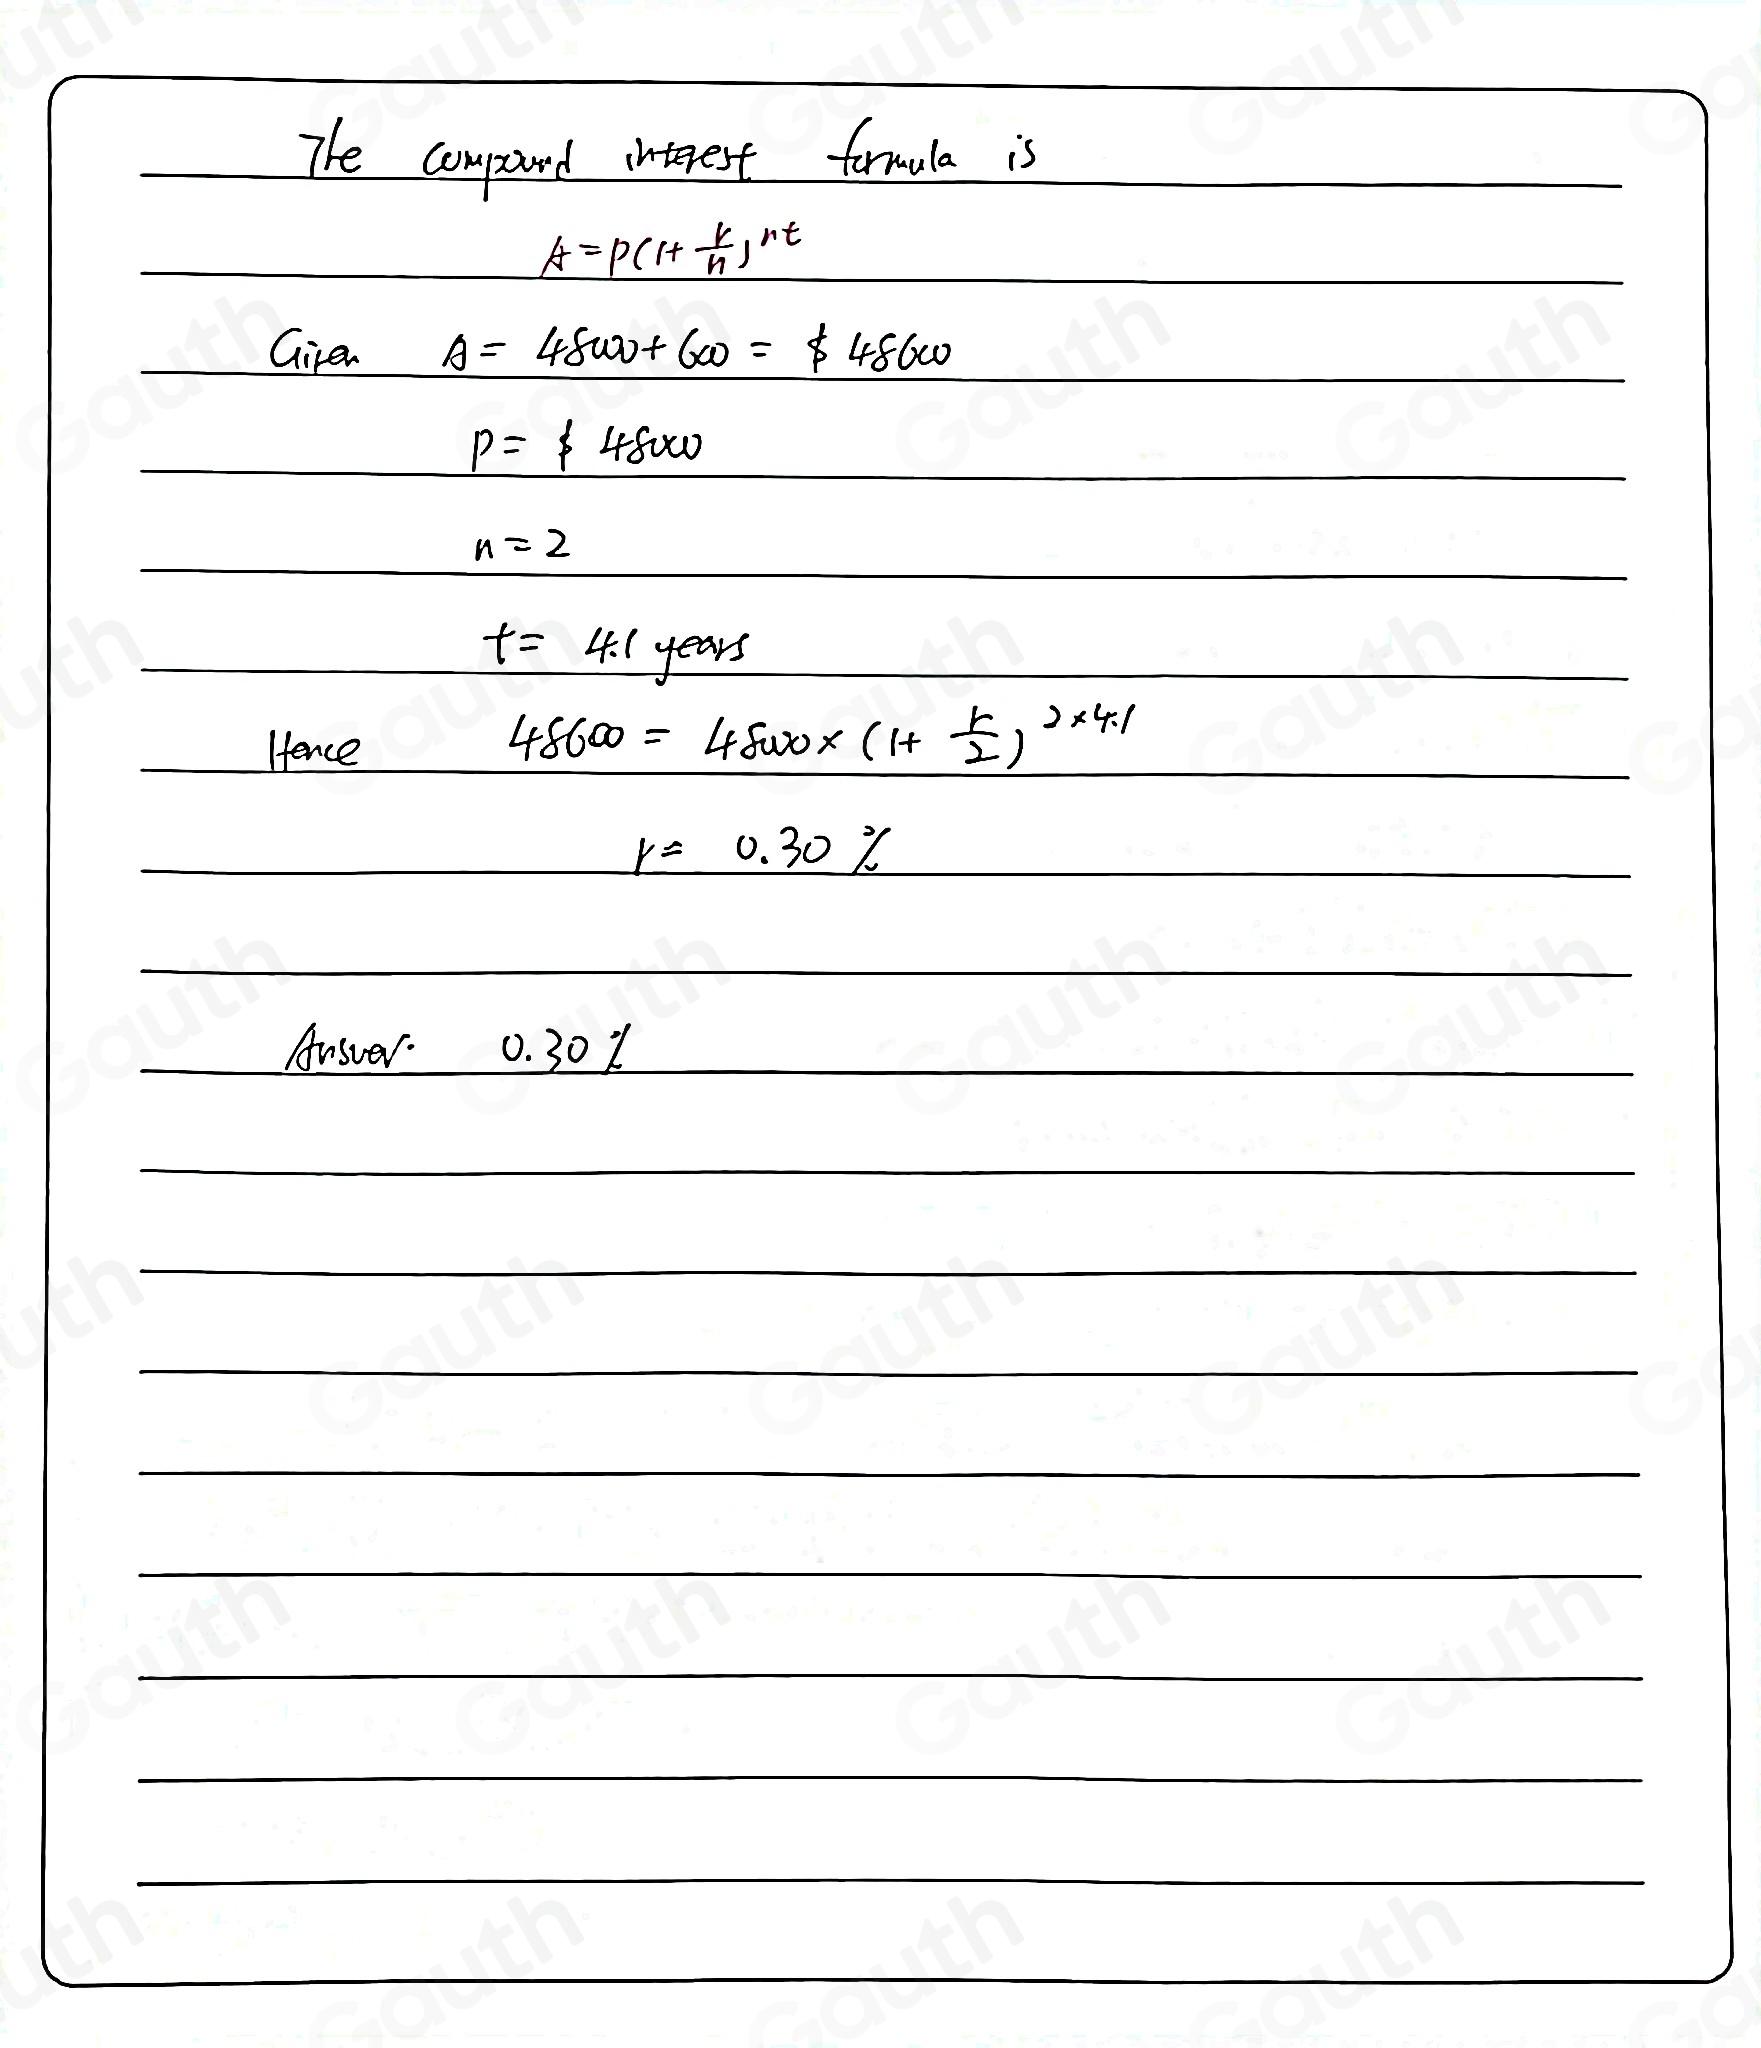 The compound interest formula is
A = P(1 + r/n)^nt
Given A = 48000 + 600 = $ 48600
P = $ 48000
n = 2
t = 4.1 years
Hence 48600 = 48000 × (1 + r/2)^2×4.1
r = 0.30 %
Answer. 0.30 %